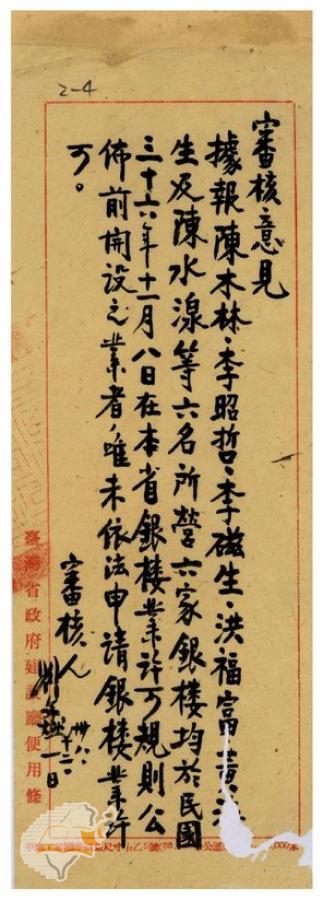 2-4
審核意見
據報陳木林、李昭哲、李磁生、洪福富、黃
生及陳水湶等六名所營六家銀樓均於民國
三十六年十一月八日在本省銀樓業許可規則公
佈前開設之業者、唯未依法申請銀樓業許
可。
審核人
一日
臺灣省政府建設廳便用條